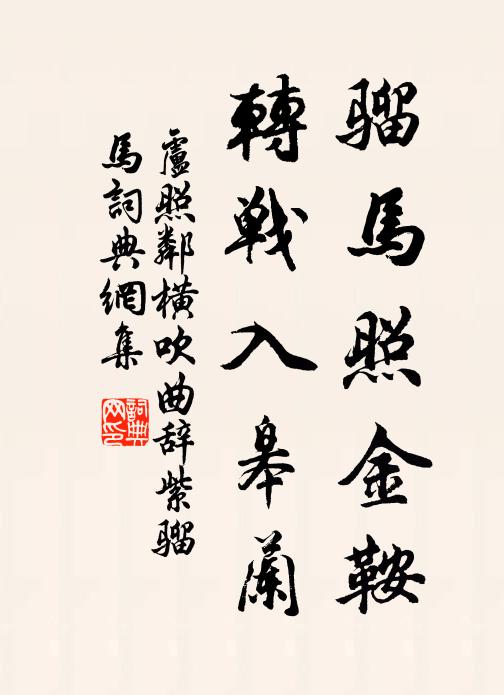 骝馬照金鞍
轉戦入皋蘭
盧照鄰橫吹曲辞紫骝
馬詞典網集
詞典
网印